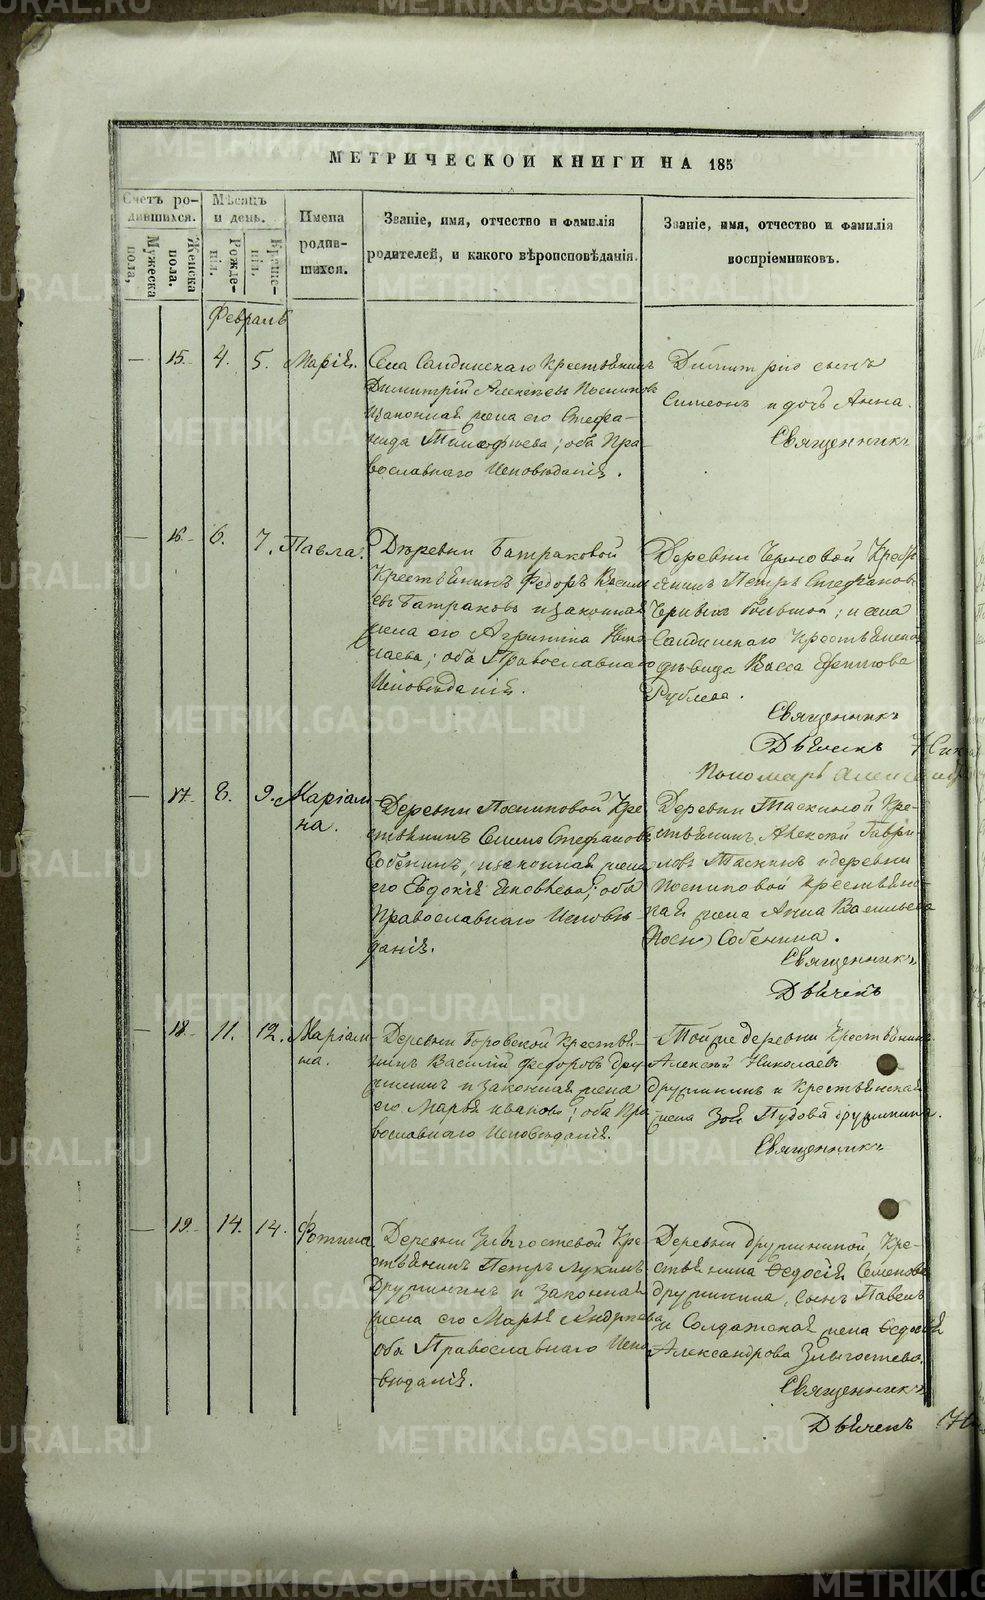 МЕТРИЧЕСКОЙ КНИГИ НА 185
Счетъ ро-
дившихся.
Мужеска
пола,
Женска
пола.
Мѣсяцъ
и день.
Рожде-
нія.
Креще-
нія.
Имена
родив-
шихся.
Званіе, имя, отчество и фамилія
родителей, и какого вѣроисповѣданія.
Званіе, имя, отчество и фамилія
воспріемниковъ.
Февраль
— 15. 4. 5. Марія.
Села Салдинскаго Крестьянинъ
Димитрій Алексѣевъ
и законная жена его Стефа-
нида Тимофѣева; оба Пра-
вославнаго Исповѣданія.
Димитрія сынъ
Симеонъ и дочь Анна.
Священникъ
— 16. 6. 7. Павла.
Деревни Батраковой
Крестьянинъ Федоръ Васил
евъ Батраковъ и законная
жена его Агрипина Нико
лаева; оба Православнаго
Исповѣданія.
Деревни Крестья
янинъ Петръ Стефановъ
большой; и села
Салдинскаго Крестьянская
дѣвица Васса
Рублева.
Священникъ
Дьячекъ
Пономарь
— 17. 8. 9. Маріам-
на.
Деревни Поспиловой Кре-
стьянинъ Стефановъ
Собенинъ, и законная жена
его Евдокія Іовлева; оба
Православнаго Исповѣ
данія.
Деревни Таскиной Кре-
стьянинъ Алексѣй Гаври-
ловъ Таскинъ и деревни
Поспиловой Крестьянс-
кая жена Анна Васильева
Собенина.
Священникъ
Дьячекъ
— 18. 11. 12. Маріам-
на.
Деревни Боровской Крестья-
нинъ Василій Федоровъ Дру-
жининъ и законная жена
его Марья Иванова; оба Пра-
вославнаго Исповѣданія.
Той же деревни Крестьянинъ
Алексѣй Николаевъ
Дружининъ и Крестьянская
жена Зоя Дружинина.
Священникъ
— 19. 14. 14. Фотина
Деревни Злыгостевой Кре-
стьянинъ Петръ Лукинъ
Дружининъ и Законная
жена его Марья Андреева
оба Православнаго Испо-
вѣданія.
Деревни Дружининой Кре-
стьянина Ѳедосія Семенова
Дружинина, сынъ Павелъ
и Солдатская жена Ѳедосія
Александрова Злыгостева.
Священникъ
Дьячекъ
METRIKI.GASO-URAL.RU